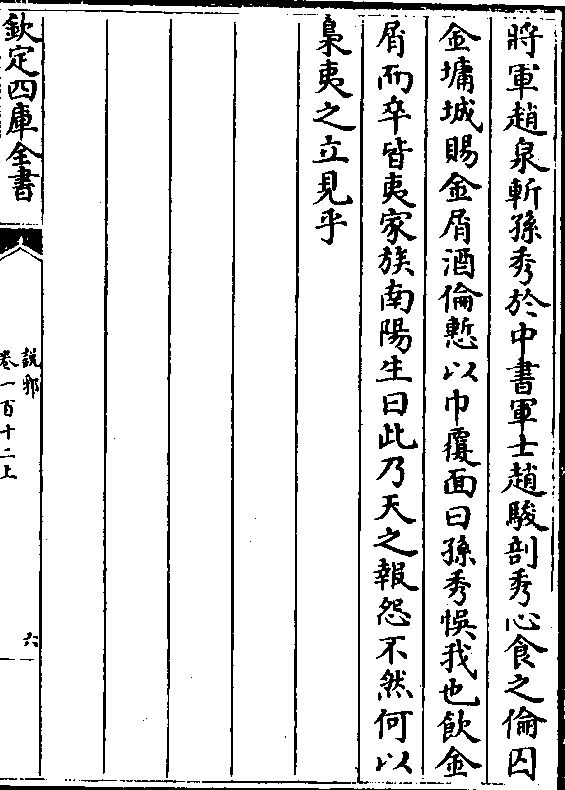 將軍趙泉斬孫秀於中書軍士趙駿剖秀心食之倫囚
金墉城賜金屑酒倫慙以巾覆面曰孫秀悞我也飲金
屑而卒皆夷家族南陽生曰此乃天之報怨不然何以
梟夷之立見乎
欽定四庫全書
說郛
卷一百十二上
六